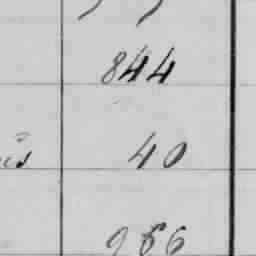 844
40
966